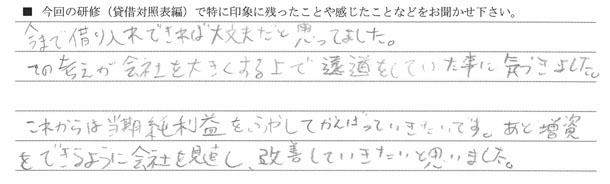 ■ 今回の研修（貸借対照表編）で特に印象に残ったことや感じたことなどをお聞かせ下さい。
今まで借り入れできれば大丈夫だと思ってました。
その考えが会社を大きくする上で遠道をしていた事に気づきました。
これからは当期純利益をふやしてがんばっていきたいです。あと増資
をできるように会社を見直し、改善していきたいと思いました。